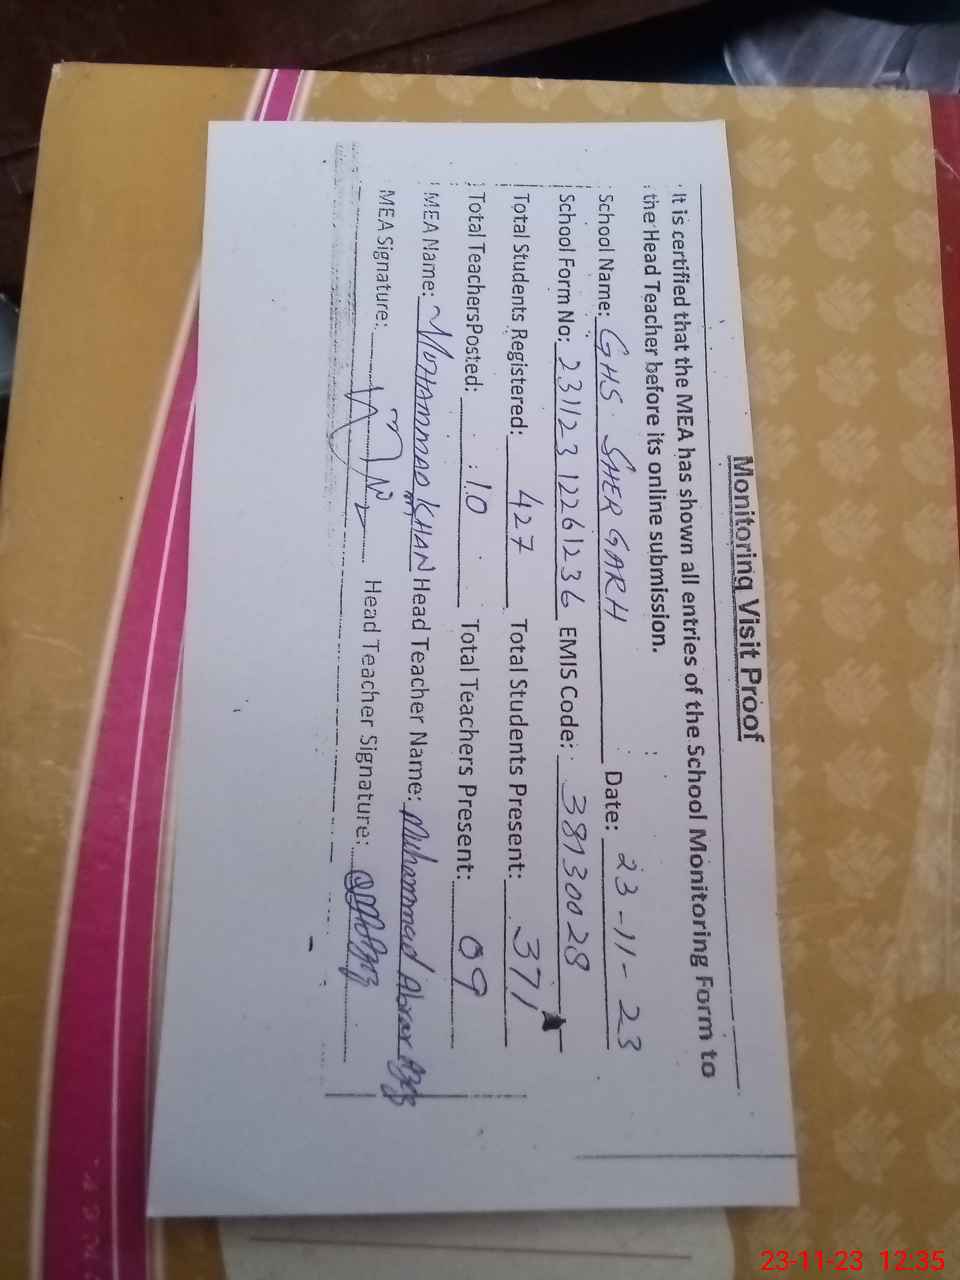 Monitoring Visit Proof
It is certified that the MEA has shown all entries of the School Monitoring Form to
the Head Teacher before its online submission.
School Name: GHS SHER GARH Date: 23-11-23
School Form No: 231123 12261236 EMIS Code: 38130028
Total Students Registered: 427 Total Students Present: 371
Total TeachersPosted: 10 Total Teachers Present: 09
MEA Name: MOHAMMAD KHAN Head Teacher Name: Muhammad Abrar
MEA Signature: Head Teacher Signature:
23-11-23 12:35